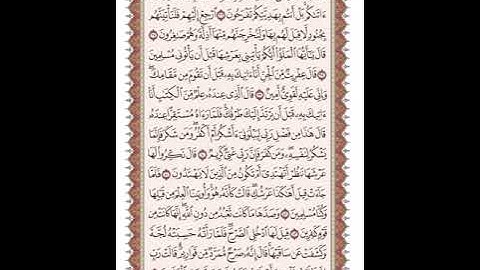 ءَاتَىٰكُمۚ بَلْ أَنتُم بِهَدِيَّتِكُمْ تَفْرَحُونَ ۝ ٱرْجِعْ إِلَيْهِمْ فَلَنَأْتِيَنَّهُم
بِجُنُودٍ لَّا قِبَلَ لَهُم بِهَا وَلَنُخْرِجَنَّهُم مِّنْهَآ أَذِلَّةً وَهُمْ صَٰغِرُونَ ۝
قَالَ يَٰٓأَيُّهَا ٱلْمَلَؤُا۟ أَيُّكُمْ يَأْتِينِى بِعَرْشِهَا قَبْلَ أَن يَأْتُونِى مُسْلِمِينَ
۝ قَالَ عِفْرِيتٌ مِّنَ ٱلْجِنِّ أَنَا۠ ءَاتِيكَ بِهِۦ قَبْلَ أَن تَقُومَ مِن مَّقَامِكَۖ
وَإِنِّى عَلَيْهِ لَقَوِىٌّ أَمِينٌ ۝ قَالَ ٱلَّذِى عِندَهُۥ عِلْمٌ مِّنَ ٱلْكِتَٰبِ أَنَا۠
ءَاتِيكَ بِهِۦ قَبْلَ أَن يَرْتَدَّ إِلَيْكَ طَرْفُكَۚ فَلَمَّا رَءَاهُ مُسْتَقِرًّا عِندَهُۥ
قَالَ هَٰذَا مِن فَضْلِ رَبِّى لِيَبْلُوَنِىٓ ءَأَشْكُرُ أَمْ أَكْفُرُۖ وَمَن شَكَرَ فَإِنَّمَا
يَشْكُرُ لِنَفْسِهِۦۖ وَمَن كَفَرَ فَإِنَّ رَبِّى غَنِىٌّ كَرِيمٌ ۝ قَالَ نَكِّرُوا۟ لَهَا
عَرْشَهَا نَنظُرْ أَتَهْتَدِىٓ أَمْ تَكُونُ مِنَ ٱلَّذِينَ لَا يَهْتَدُونَ ۝ فَلَمَّا
جَآءَتْ قِيلَ أَهَٰكَذَا عَرْشُكِۖ قَالَتْ كَأَنَّهُۥ هُوَۚ وَأُوتِينَا ٱلْعِلْمَ مِن قَبْلِهَا
وَكُنَّا مُسْلِمِينَ ۝ وَصَدَّهَا مَا كَانَت تَّعْبُدُ مِن دُونِ ٱللَّهِۖ إِنَّهَا كَانَتْ مِن
قَوْمٍ كَٰفِرِينَ ۝ قِيلَ لَهَا ٱدْخُلِى ٱلصَّرْحَۖ فَلَمَّا رَأَتْهُ حَسِبَتْهُ لُجَّةً
وَكَشَفَتْ عَن سَاقَيْهَاۚ قَالَ إِنَّهُۥ صَرْحٌ مُّمَرَّدٌ مِّن قَوَارِيرَۗ قَالَتْ رَبِّ